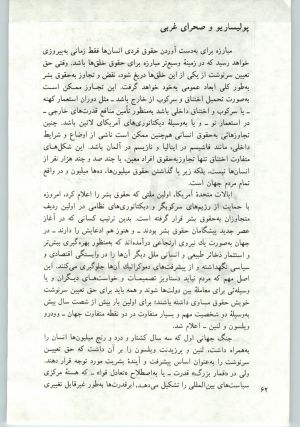 پولیساریو و صحرای غربی
مبارزه برای به‌دست آوردن حقوق فردی انسان‌ها فقط زمانی به‌پیروزی
خواهد رسید که در زمینهٔ وسیع‌تر مبارزه برای حقوق خلق‌ها باشد. وقتی حق
تعیین سرنوشت از یکی از این خلق‌ها دریغ شود، نقض و تجاوز به‌حقوق بشر
به‌طور کلی ابعاد عمومی به‌خود خواهد گرفت. این تجاوز ممکن است
به‌صورت تحمیل اختناق و سرکوب از خارج باشد ـ مثل دوران استعمار کهنه
ـ یا سرکوب و اختناق داخلی باشد به‌منظور تأمین منافع قدرت‌های خارجی ـ
در استعمار نو ـ و یا به‌وسیلهٔ دیکتاتوری‌های آمریکای لاتین باشد. چنین
تجاوزهائی به‌حقوق انسانی هم‌چنین ممکن است ناشی از اوضاع و شرایط
داخلی، مانند فاشیسم در ایتالیا و نازیسم در آلمان باشد. این شکل‌های
متفاوت اختناق تنها تجاوز به‌حقوق افراد معین، یا چند صد و چند هزار نفر از
انسان‌ها نیست، بلکه زیر پا گذاشتن حقوق میلیون‌ها، ده‌ها میلیون و در واقع
تمام مردم جهان است.
ایالات متحدهٔ آمریکا، اولین ملتی که حقوق بشر را اعلام کرد، امروزه
با حمایت از رژیم‌های سرکوبگر و دیکتاتوری‌های نظامی در اولین ردیف
متجاوزان به‌حقوق بشر قرار گرفته است. بدین ترتیب کسانی که در آغاز
عصر جدید پیشگامان حقوق بشر بودند ـ و هنوز هم ادعایش را دارند ـ در
جهان به‌صورت یك نیروی ارتجاعی درآمده‌اند که به‌منظور بهره‌گیری بیش‌تر
و استثمار ذخائر طبیعی و انسانی ملل دیگر آن‌ها را در وابستگی اقتصادی و
سیاسی نگهداشته و از پیشرفت‌های دموکراتیك آن‌ها جلوگیری می‌کنند. این
اصل مهم که مردم نباید دستاویز تصمیمات و خواست‌های دیگران و یا
وسیله‌ئی برای معاملهٔ بین دولت‌ها شوند و همه باید برای حق تعیین سرنوشت
خویش حقوق مساوی داشته باشند؛ برای اولین بار بیش از شصت سال پیش
به‌وسیلهٔ دو شخصیت مهم و بسیار متفاوت در دو نقطه متفاوت جهان ـ وودرو
ویلسون و لنین ـ اعلام شد.
جنگ جهانی اول که سه سال کشتار و درد و رنج میلیون‌ها انسان را
به‌همراه داشت، لنین و پرزیدنت ویلسون را بر آن داشت که حق تعیین
سرنوشت را به‌عنوان اساس پیشرفت و آیندهٔ بشریت مورد توجه قرار دهند.
ولی در «قمار بزرگ» قدرت ـ یا به‌اصطلاح «تعادل قوا» ـ که هستهٔ مرکزی
سیاست‌های بین‌المللی را تشکیل می‌دهد، ابرقدرت‌ها به‌طور غیرقابل تغییری
۶۲